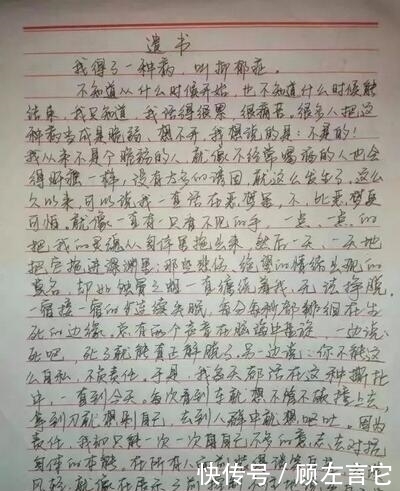 遗书
我得了一种病，叫抑郁症。
不知道从什么时候开始，也不知道什么时候能
结束，我只知道，我活得很累，很痛苦。很多人把这
种病当成是脆弱、想不开，我想说的是：不是的！
我从来不是个脆弱的人，就像不经常喝酒的人也会
得肝癌一样，没有太多的诱因，就这么发生了，这么
久以来，可以说我一直活在恶梦里，不，比恶梦更
可怕。就像一直有一只看不见的手，一点、一点的
把我的灵魂从身体里拖出来，然后一天、一天地
把它拖进深渊里；那些悲伤、绝望的情绪出现的
莫名，却如蚀骨之蛆一直缠绕着我，无法挣脱。
一宿接一宿的连续失眠，每分每秒都徘徊在生
死的边缘，总有两个声音在脑海中，一边说：
死吧，死了就能真正解脱了，另一边说：你不能这
么自私，不负责任。于是，我每天都活在这种撕扯
中，一直到今天。每次看到车就想不惜不破撞上去，
拿到刀就想割自己，去到人群中就想呕吐。因为
责任，我却只能一次一次用自己的去对抗
身体的本能。在所有人面前装得
风轻就像在
快传号／顾左言它